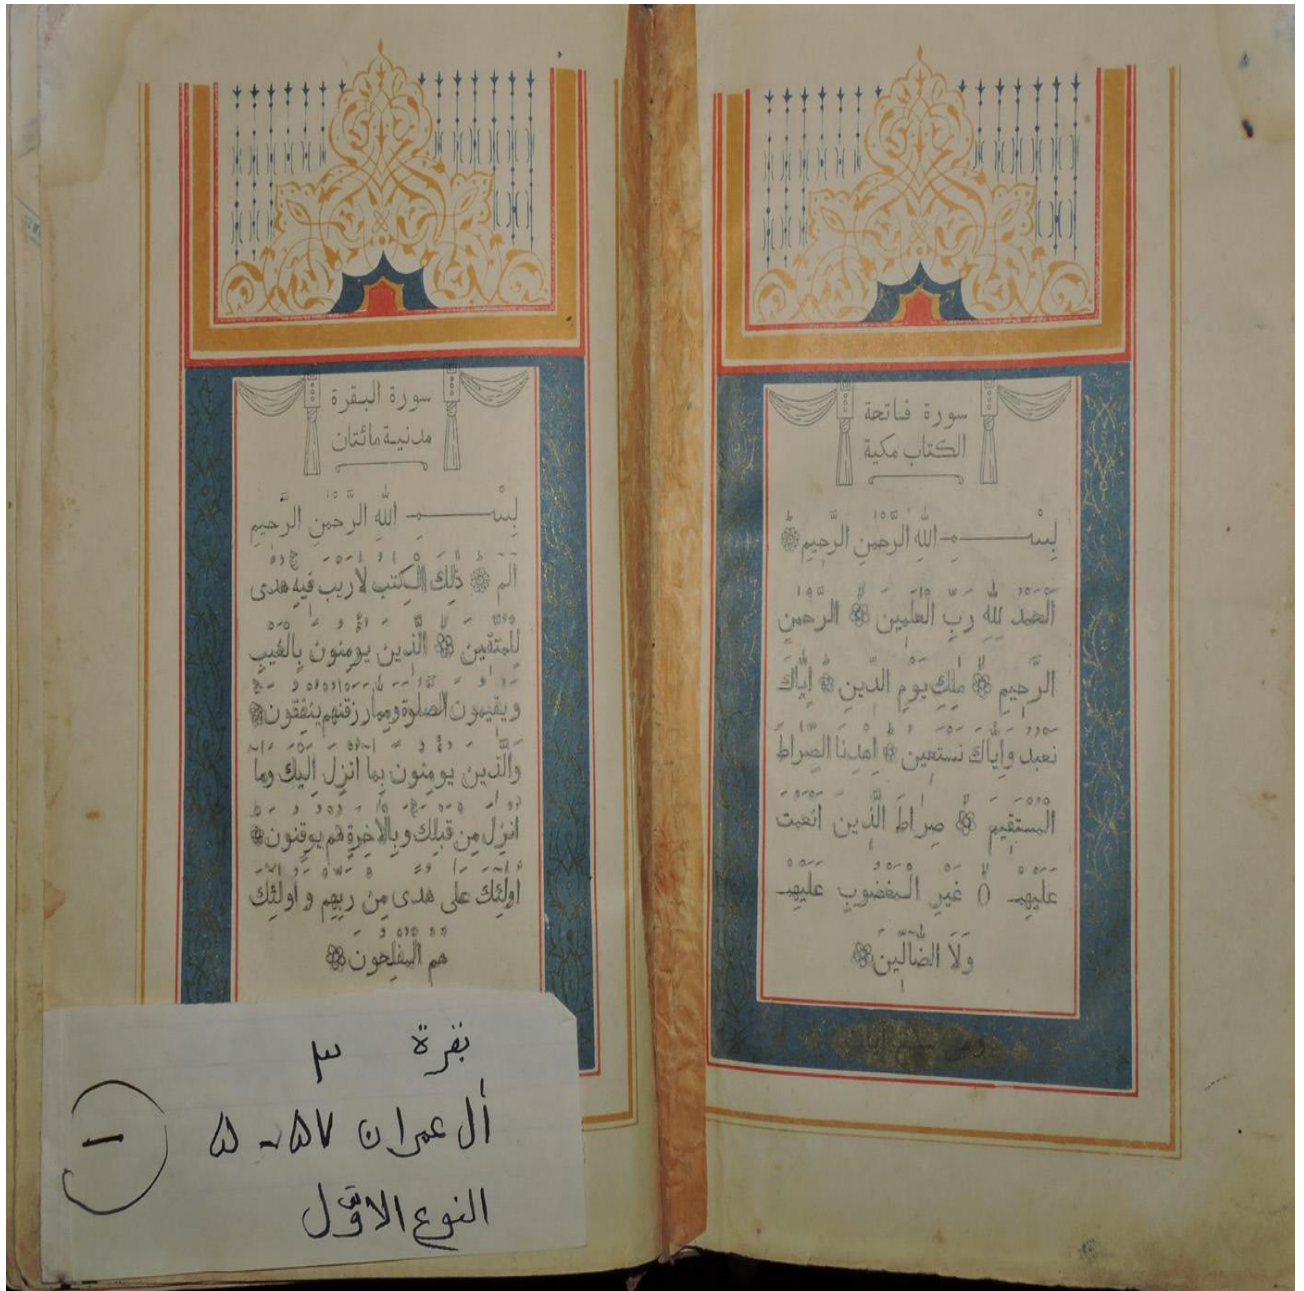 سورة فاتحة
الكتاب مكية
بِسْمِ اللهِ الرَّحْمٰنِ الرَّحِيمِ
اَلْحَمْدُ لِلّٰهِ رَبِّ الْعٰلَمِينَ الرَّحْمٰنِ
الرَّحِيمِ مٰلِكِ يَوْمِ الدِّينِ اِيَّاكَ
نَعْبُدُ وَاِيَّاكَ نَسْتَعِينُ اِهْدِنَا الصِّرَاطَ
الْمُسْتَقِيمَ صِرَاطَ الَّذِينَ اَنْعَمْتَ
عَلَيْهِمْ غَيْرِ الْمَغْضُوبِ عَلَيْهِمْ
وَلَا الضَّالِّينَ
سورة البقرة
مدنية مائتان
بِسْمِ اللهِ الرَّحْمٰنِ الرَّحِيمِ
الٓمٓ ذٰلِكَ الْكِتٰبُ لَا رَيْبَ فِيهِ هُدًى
لِلْمُتَّقِينَ الَّذِينَ يُؤْمِنُونَ بِالْغَيْبِ
وَيُقِيمُونَ الصَّلٰوةَ وَمِمَّا رَزَقْنٰهُمْ يُنْفِقُونَ
وَالَّذِينَ يُؤْمِنُونَ بِمَا اُنْزِلَ اِلَيْكَ وَمَا
اُنْزِلَ مِنْ قَبْلِكَ وَبِالْاٰخِرَةِ هُمْ يُوقِنُونَ
اُولٰٓئِكَ عَلٰى هُدًى مِنْ رَبِّهِمْ وَاُولٰٓئِكَ
هُمُ الْمُفْلِحُونَ
بقرة ٣
أل عمران ٥٧ - ٥
النوع الاوّل
١